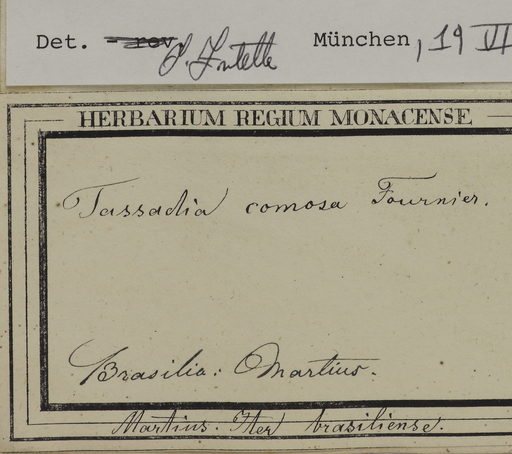 Det. - rev J. Fontella München, 19 VI
HERBARIUM REGIUM MONACENSE
Tassadia comosa Fournier.
Brasilia: Martius.
Martius. Iter brasiliense.